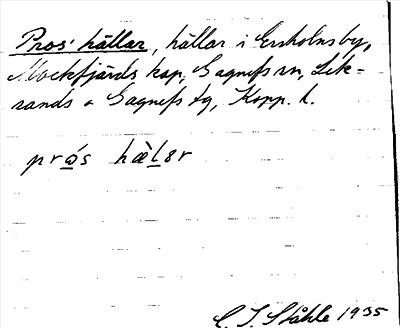 Pros' hällar, hällar i Ersholns by,
Mockfjärds kap, Gagnefs sn, Lek-
sands o Gagnefs tg, Kopp. l.
prǫ́s hæ̀lạr
C. I. Ståhle 1935